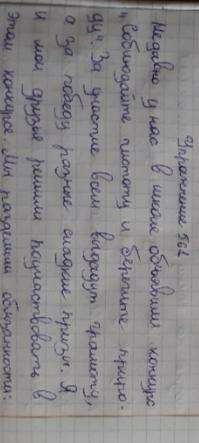 Упражнение 562
Недавно у нас в школе объявили конкурс
„Соблюдайте чистоту и берегите приро-
ду". За участие всем выдадут грамоту,
а за победу разные сладкие призы. Я
и мои друзья решили поучаствовать в
этом конкурсе. Мы разделили обязанности: